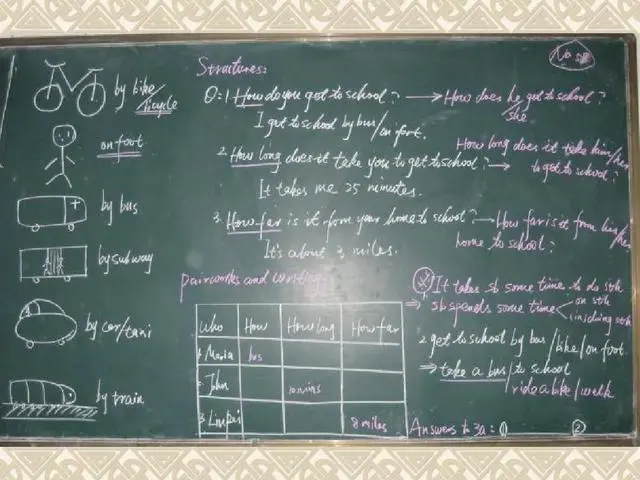 by bike
bicycle
on foot
by bus
by subway
by car/taxi
by train
Structures:
Q: 1. How do you get to school? → How does he get to school?
she
I get to school by bus/on foot.
2. How long does it take you to get to school? → How long does it take him/her
to get to school?
It takes me 25 minutes.
3. How far is it from your home to school? → How far is it from his/her
home to school?
It's about 3 miles.
Pairworks and writing
Who How How long How far
1 Maria bus
2 John 10 mins
3 8 miles
It takes sb some time to do sth
⇒ sb spends some time on sth
(in) doing sth
2 get to school by bus/bike/on foot
⇒ take a bus to school
/ride a bike/walk
Answers to 3a: ① ②